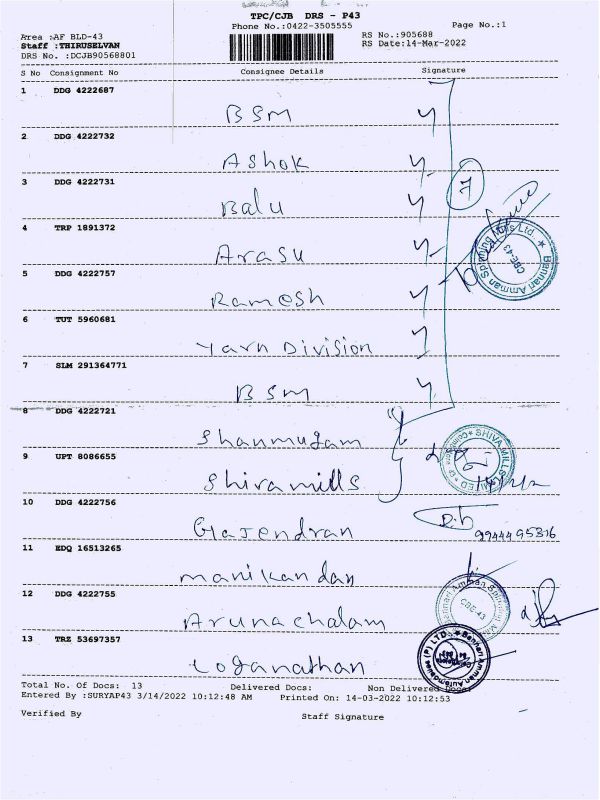 TPC/CJB DRS - P43
Phone No.:0422-3505555 Page No.:1
Area :AF BLD-43 RS No.:905688
Staff :THIRUSELVAN RS Date:14-Mar-2022
DRS No. :DCJB90568801
S No Consignment No Consignee Details Signature
1 DDG 4222687
BSM
2 DDG 4222732
Ashok
3 DDG 4222731
Balu
7
4 TRP 1891372
Arasu
Bannari Amman Spinning Mills Ltd. ★
CBE-43
5 DDG 4222757
Ramesh
6 TUT 5960681
Yarn Division
7 SLM 291364771
BSM
8 DDG 4222721
Shanmugam
9 UPT 8086655
Shiva mills
SHIVA MILLS LIMITED
10 DDG 4222756
Gajendran
9944495316
11 EDQ 16513265
manikandan
12 DDG 4222755
Arunachalam
Bannari Amman Spinning
CBE-43
13 TRZ 53697357
Loganathan
Bannari Amman Automobiles (P) LTD. ★
Total No. Of Docs: 13 Delivered Docs: Non Delivered Docs:
Entered By :SURYAP43 3/14/2022 10:12:48 AM Printed On: 14-03-2022 10:12:53
Verified By Staff Signature